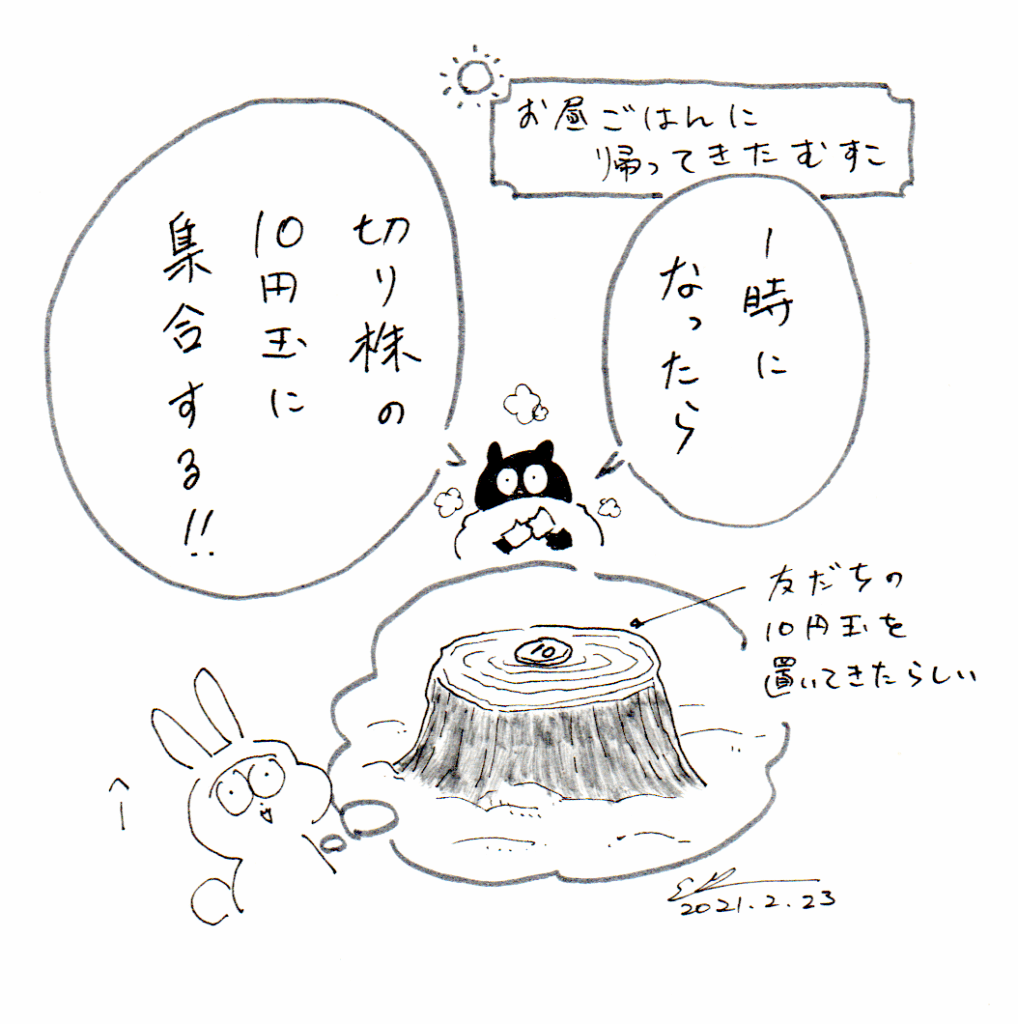 お昼ごはんに
帰ってきたむすこ
1時に
なったら
切り株の
10円玉に
集合する!!
友だちの
10円玉を
置いてきたらしい
10
2021.2.23